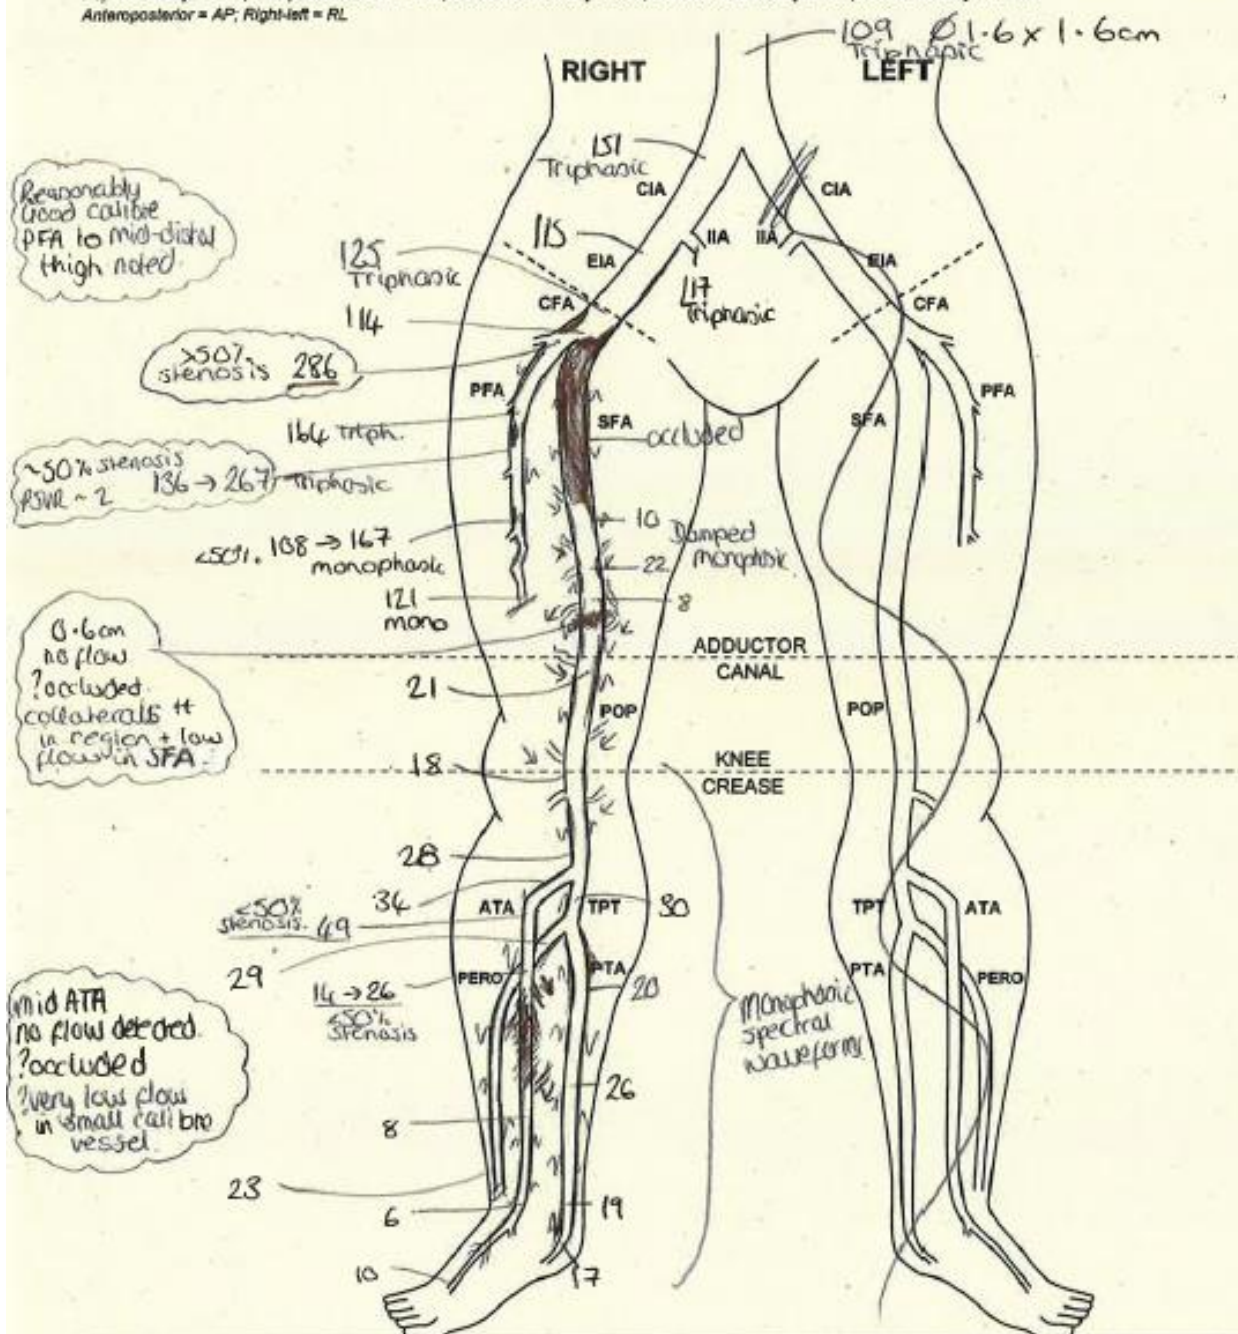 Anteroposterior = AP; Right-left = RL
109 Ø1.6 x 1.6cm
Triphasic
RIGHT
LEFT
151
Triphasic
CIA
CIA
Reasonably
Good calibre
PFA to mid-distal
thigh noted
115
IIA
IIA
125
Triphasic
EIA
EIA
117
Triphasic
CFA
CFA
114
>50%
stenosis 286
PFA
PFA
SFA
SFA
164 Triph.
occluded
~50% stenosis
PSVR ~ 2 136 → 267 Triphasic
10 Damped
monophasic
<50%. 108 → 167
monophasic
22
121
mono
8
0.6cm
no flow
?occluded.
collaterals ++
in region + low
flow in SFA.
ADDUCTOR
CANAL
21
POP
POP
18
KNEE
CREASE
28
34
ATA
TPT
30
TPT
ATA
<50%
stenosis. 49
29
PERO
PTA
20
PTA
PERO
14 → 26
<50%
stenosis
Monophasic
spectral
waveforms
mid ATA
no flow detected.
?occluded
?very low flow
in small calibre
vessel.
26
8
23
6
19
10
17